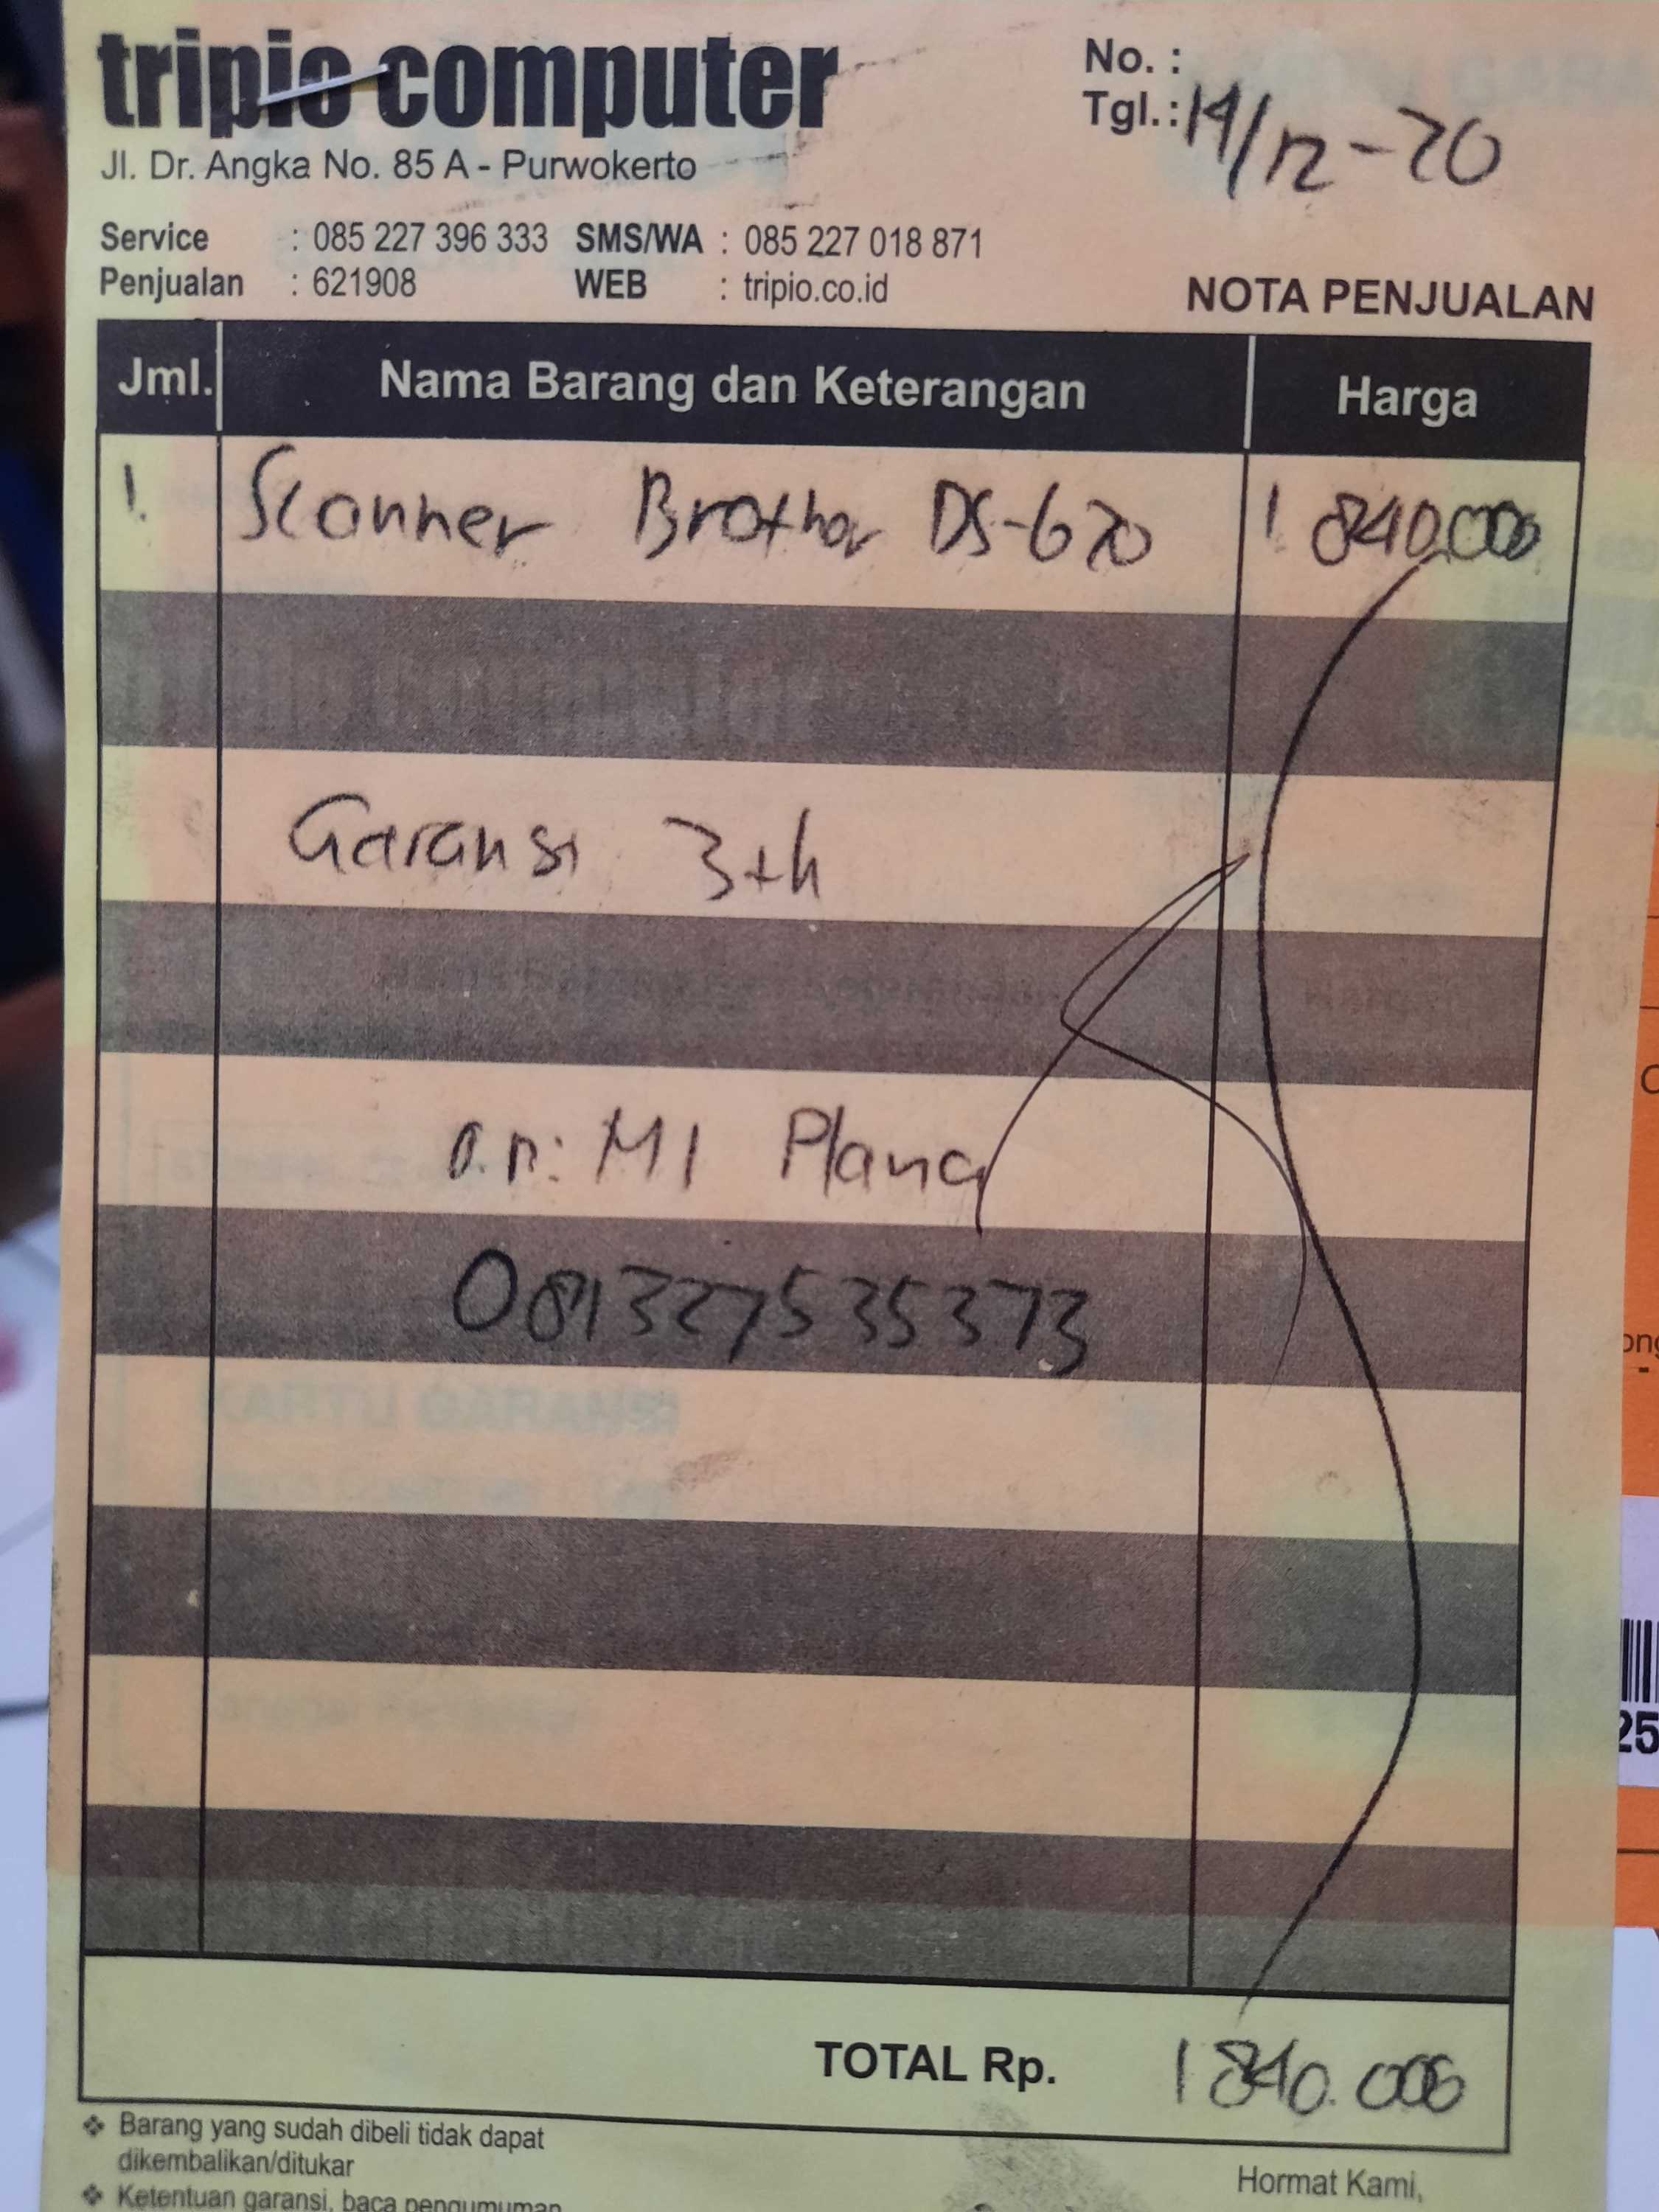 tripio computer
Jl. Dr. Angka No. 85 A - Purwokerto
No. :
Tgl. : 14/12-20
Service : 085 227 396 333 SMS/WA : 085 227 018 871
Penjualan : 621908 WEB : tripio.co.id
NOTA PENJUALAN
Jml. Nama Barang dan Keterangan Harga
1. Scanner Brother DS-620 1.840.000
Garansi 3th
a.n: MI Plana
081327535373
KARTU GARANSI
TOTAL Rp. 1840.000
❖ Barang yang sudah dibeli tidak dapat
dikembalikan/ditukar
❖ Ketentuan garansi, baca pengumuman
Hormat Kami,
25